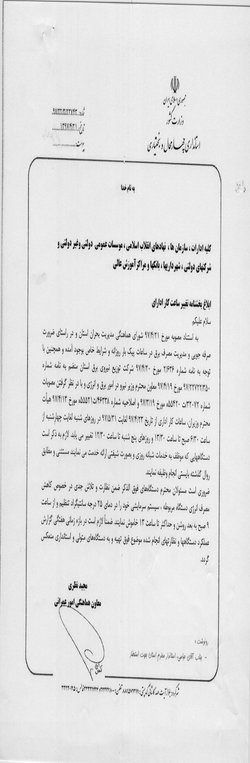 جمهوری اسلامی ایران
وزارت کشور
استانداری چهارمحال و بختیاری
به نام خدا
کلیه ادارات ، سازمان ها ، نهادهای انقلاب اسلامی ، موسسات عمومی دولتی وغیر دولتی و
شرکتهای دولتی ، شهرداریها ، بانکها و مراکز آموزش عالی
ابلاغ بخشنامه تغییر ساعت کار اداری
سلام علیکم
به استناد مصوبه مورخ ۹۷/۴/۲۱ شورای هماهنگی مدیریت بحران استان و در راستای ضرورت
صرفه جویی و مدیریت مصرف برق در ساعات پیک بار روزانه و شرایط خاص بوجود آمده و همچنین با
توجه به نامه شماره مورخ ۹۷/۴/۲۰ شرکت توزیع نیروی برق استان منضم به نامه شماره
مورخ ۹۷/۴/۱۹ معاون محترم وزیر نیرو در امور برق و انرژی و با در نظر گرفتن مصوبات
شماره مورخ و اصلاحیه شماره مورخ ۹۷/۴/۱۳ هیأت
محترم وزیران، ساعات کار اداری از تاریخ ۹۷/۴/۲۳ لغایت ۹۷/۵/۳۱ در روزهای شنبه لغایت چهارشنبه از
ساعت ۶:۳۰ صبح تا ساعت ۱۳:۳۰ و روزهای پنج شنبه تا ساعت ۱۲:۳۰ تغییر می یابد. لازم به ذکر است
دستگاههایی که موظف به خدمات شبانه روزی و بصورت شیفتی ارائه خدمت می نمایند مستثنی و مطابق
روال گذشته بایستی انجام وظیفه نمایند.
ضروری است مسئولان محترم دستگاههای فوق الذکر ضمن نظارت و تلاش جدی در خصوص کاهش
مصرف انرژی دستگاه مربوطه، سیستم سرمایشی خود را در دمای ۲۵ درجه سانتیگراد تنظیم و از ساعت
۹ صبح به بعد روشن و حداکثر تا ساعت ۱۳ خاموش نمایند. ضمناً لازم است در بازه زمانی هفتگی گزارش
عملکرد دستگاهها و نظارتهای انجام شده موضوع فوق تهیه و به دستگاههای متولی و استانداری منعکس
گردد.
مجید نظری
معاون هماهنگی امور عمرانی
رونوشت :
- جناب آقای عباسی، استاندار محترم استان جهت استحضار